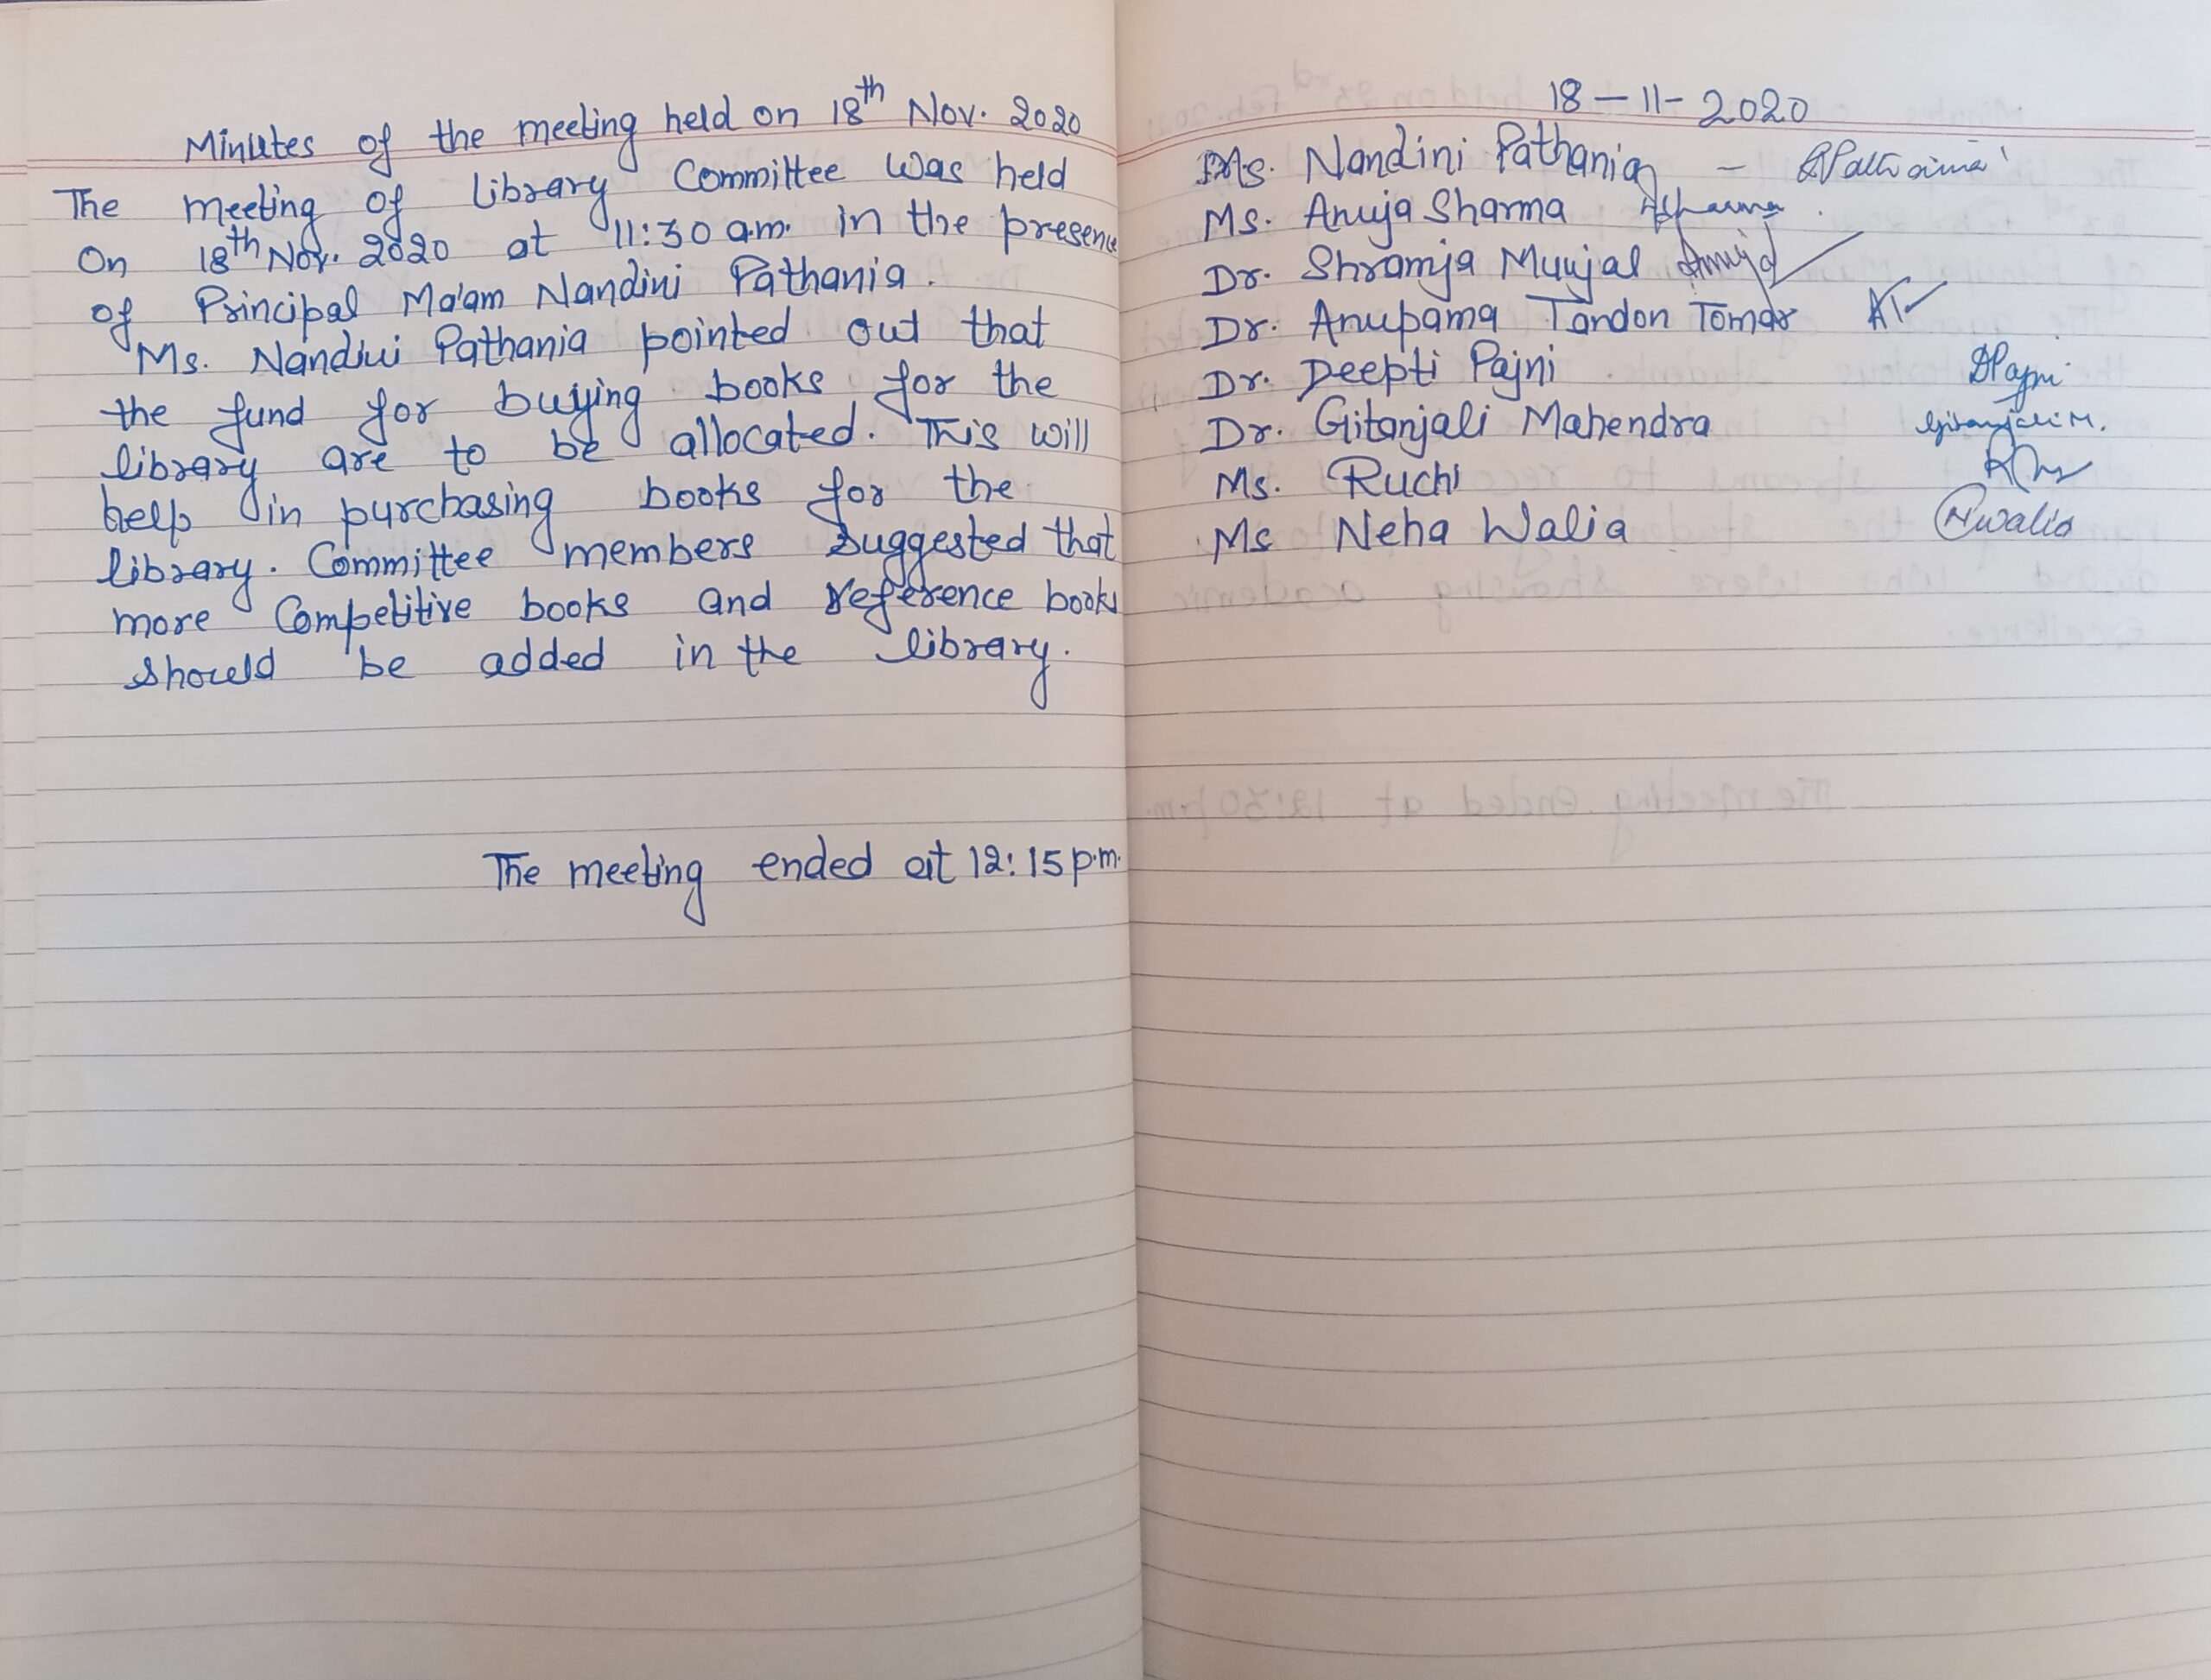 Minutes of the meeting held on 18th Nov. 2020
The meeting of Library Committee was held
On 18th Nov. 2020 at 11:30 a.m. in the presence
of Principal Ma'am Nandini Pathania.
Ms. Nandini Pathania pointed out that
the fund for buying books for the
library are to be allocated. This will
help in purchasing books for the
library. Committee members suggested that
more Competitive books and reference books
should be added in the library.
The meeting ended at 12:15 p.m.
18-11-2020
Ms. Nandini Pathania -
Ms. Anuja Sharma ASharma
Dr. Shramja Munjal
Dr. Anupama Tandon Tomar AT
Dr. Deepti Pajni DPajni
Dr. Gitanjali Mahendra Gitanjali M.
Ms. Ruchi
Ms Neha Walia Nwalia